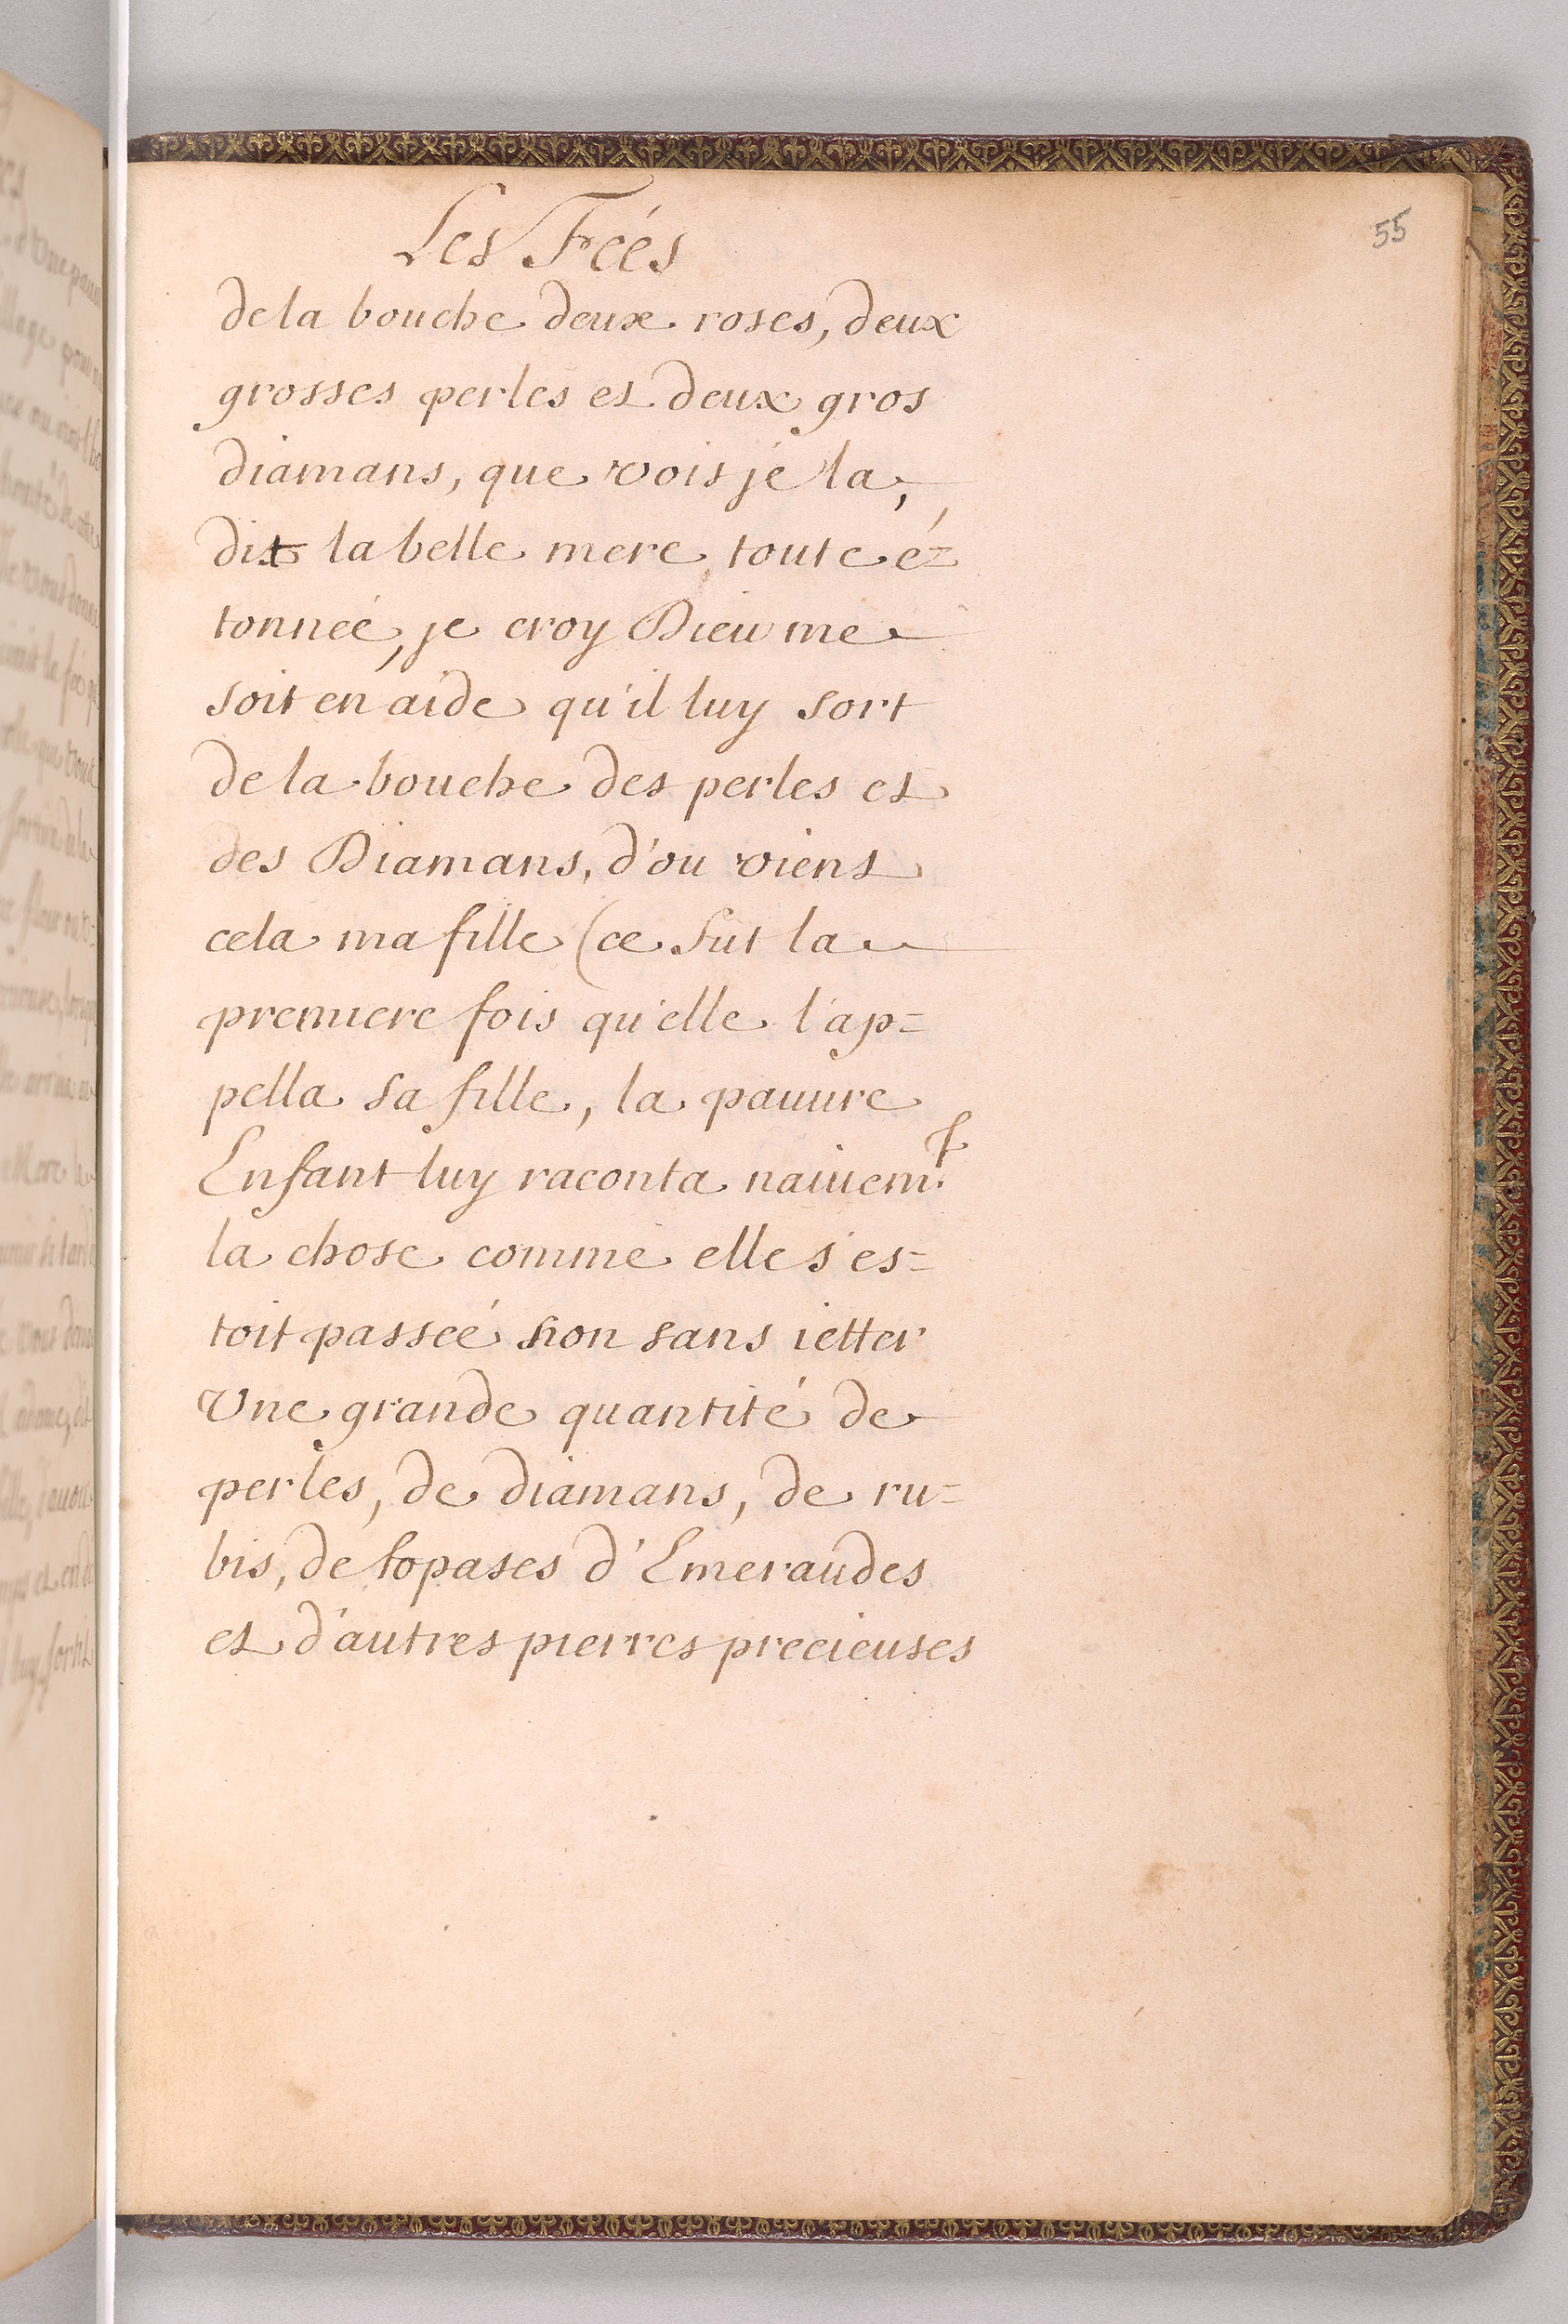 55
Les Feés
de la bouche deux roses, deux
grosses perles et deux gros
diamans, que vois je la,
dit la belle mere toute é=
tonneé, je croy Dieu me
soit en aide qu'il luy sort
de la bouche des perles et
des Diamans, d'ou vient
cela ma fille (ce fut la
premiere fois qu'elle l'ap=
pella sa fille, la pauure
Enfant luy raconta naiuemt.
la chose comme elle s'es=
toit passeé non sans ietter
Une grande quantité de
perles, de diamans, de ru=
bis, de topases d'Emeraudes
et d'autres pierres precieuses